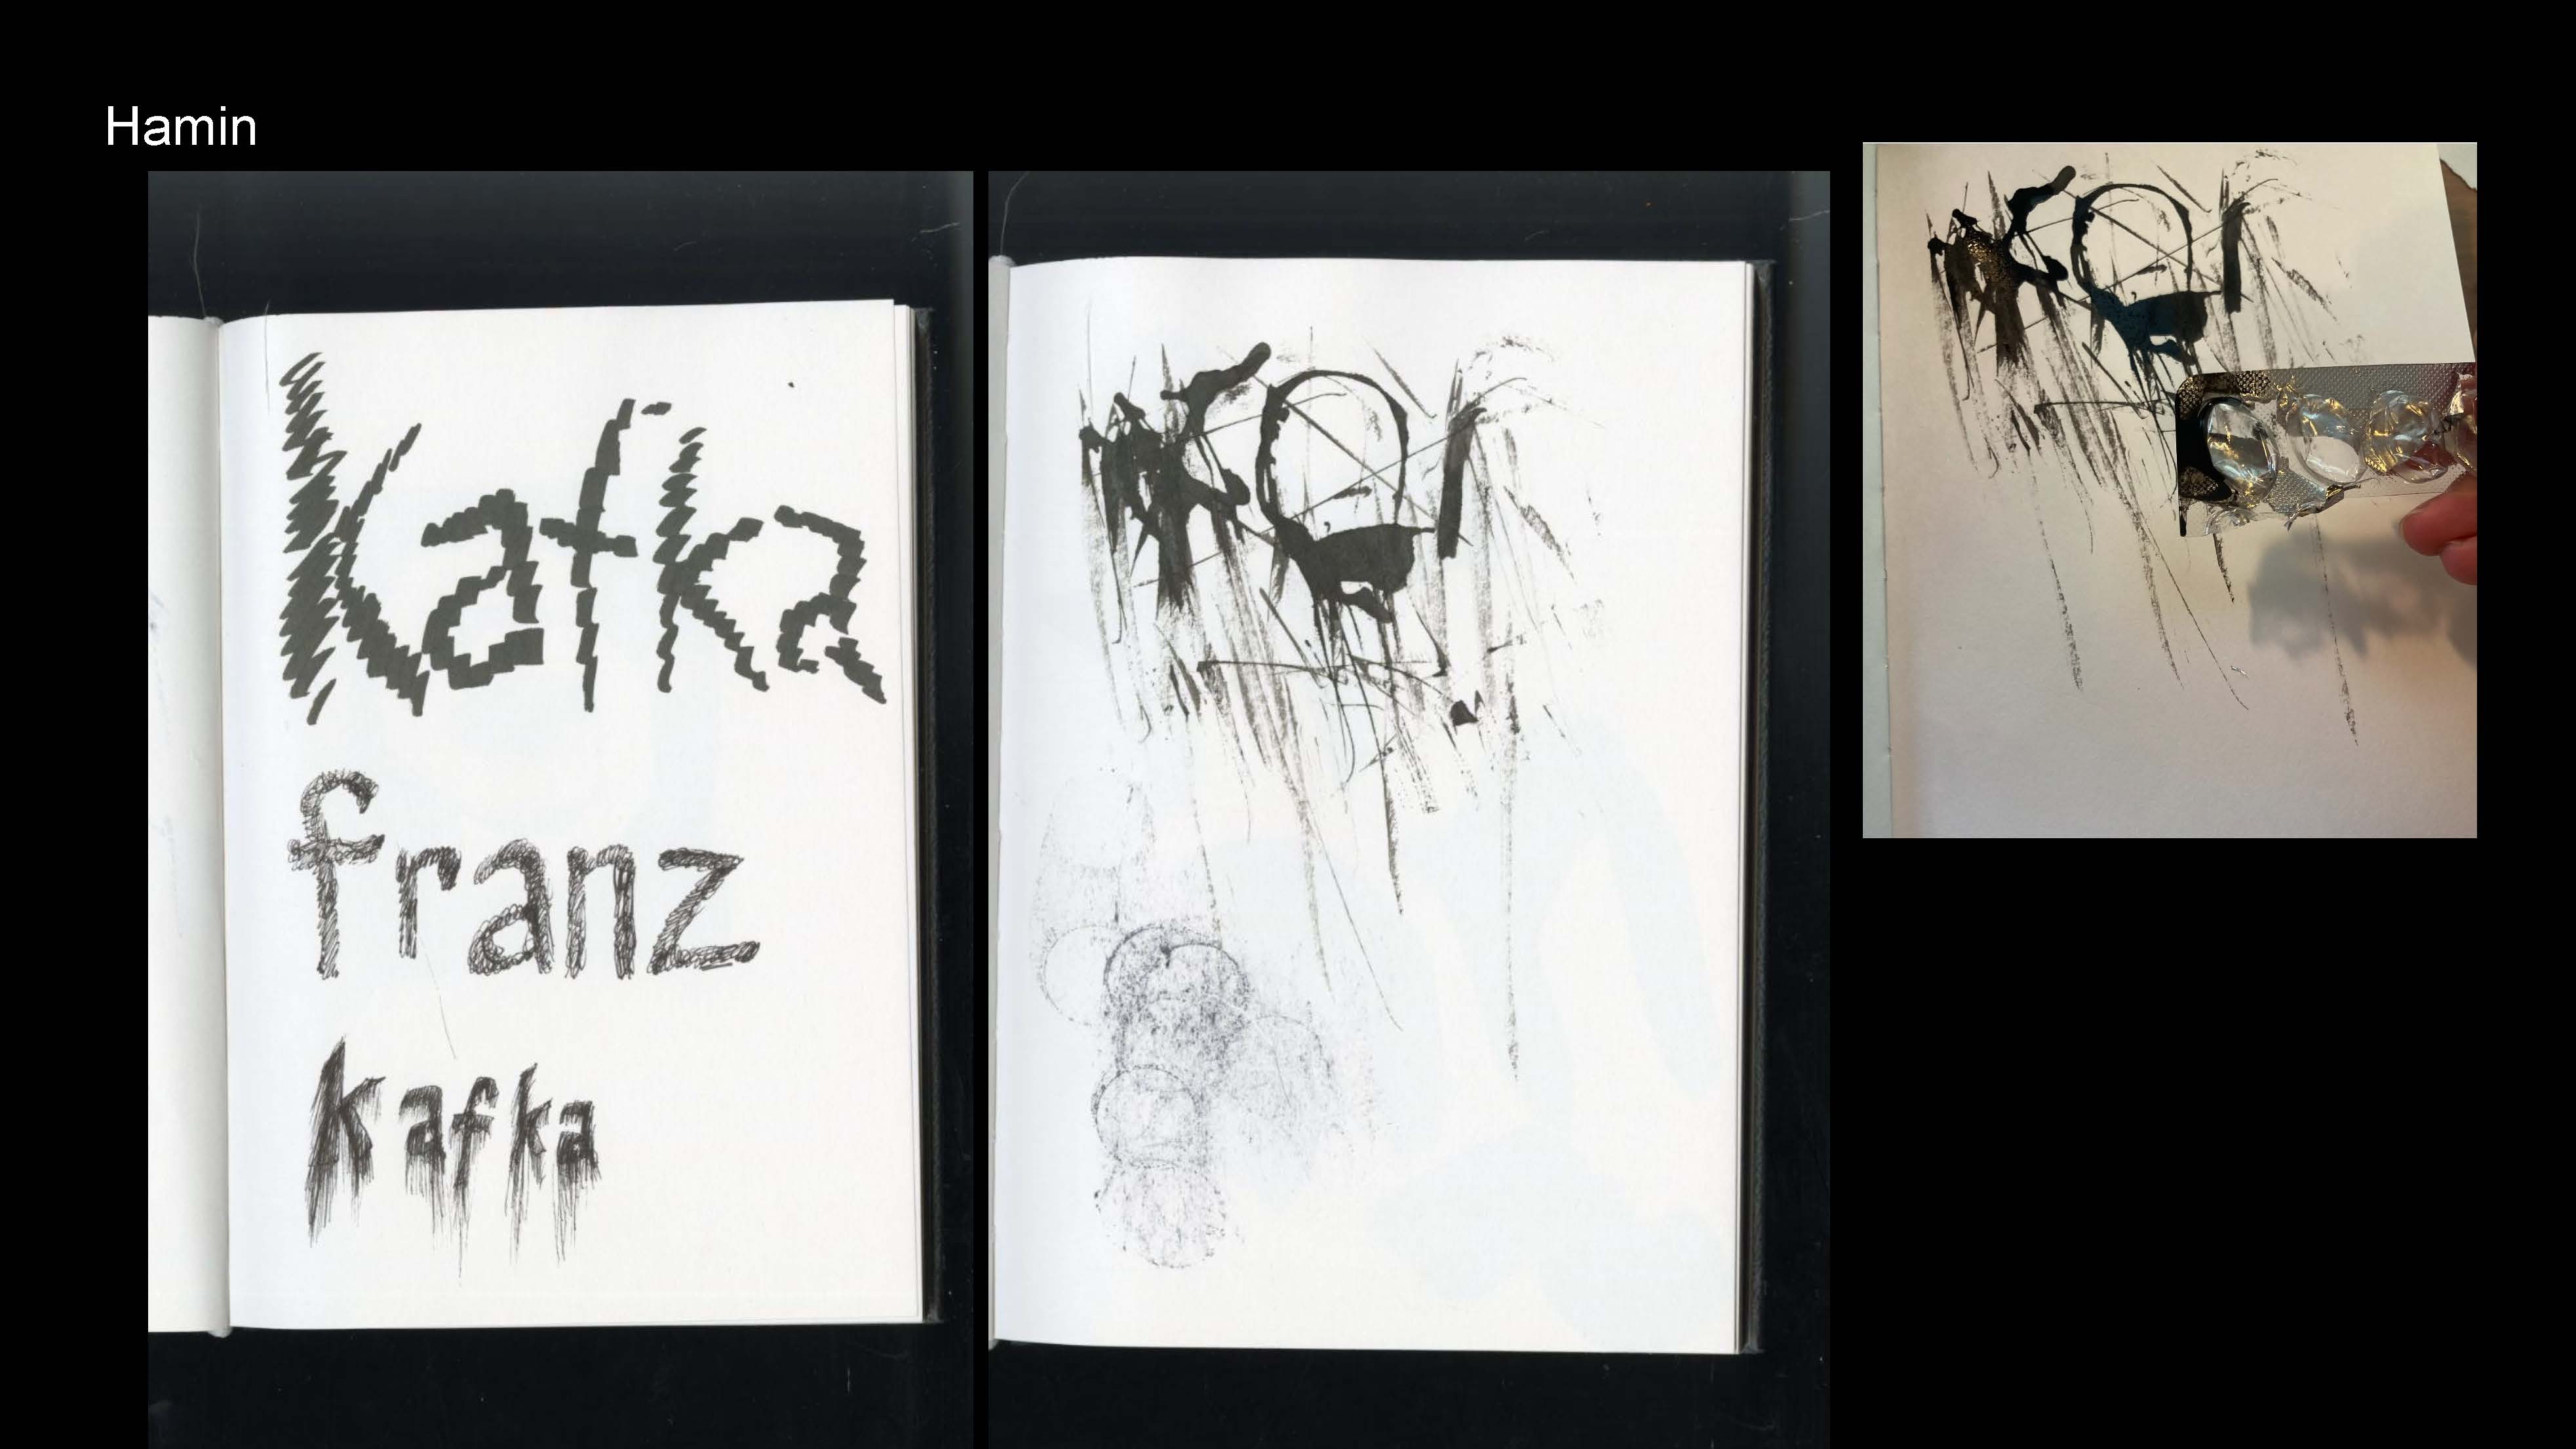 Hamin
Kafka
franz
kafka